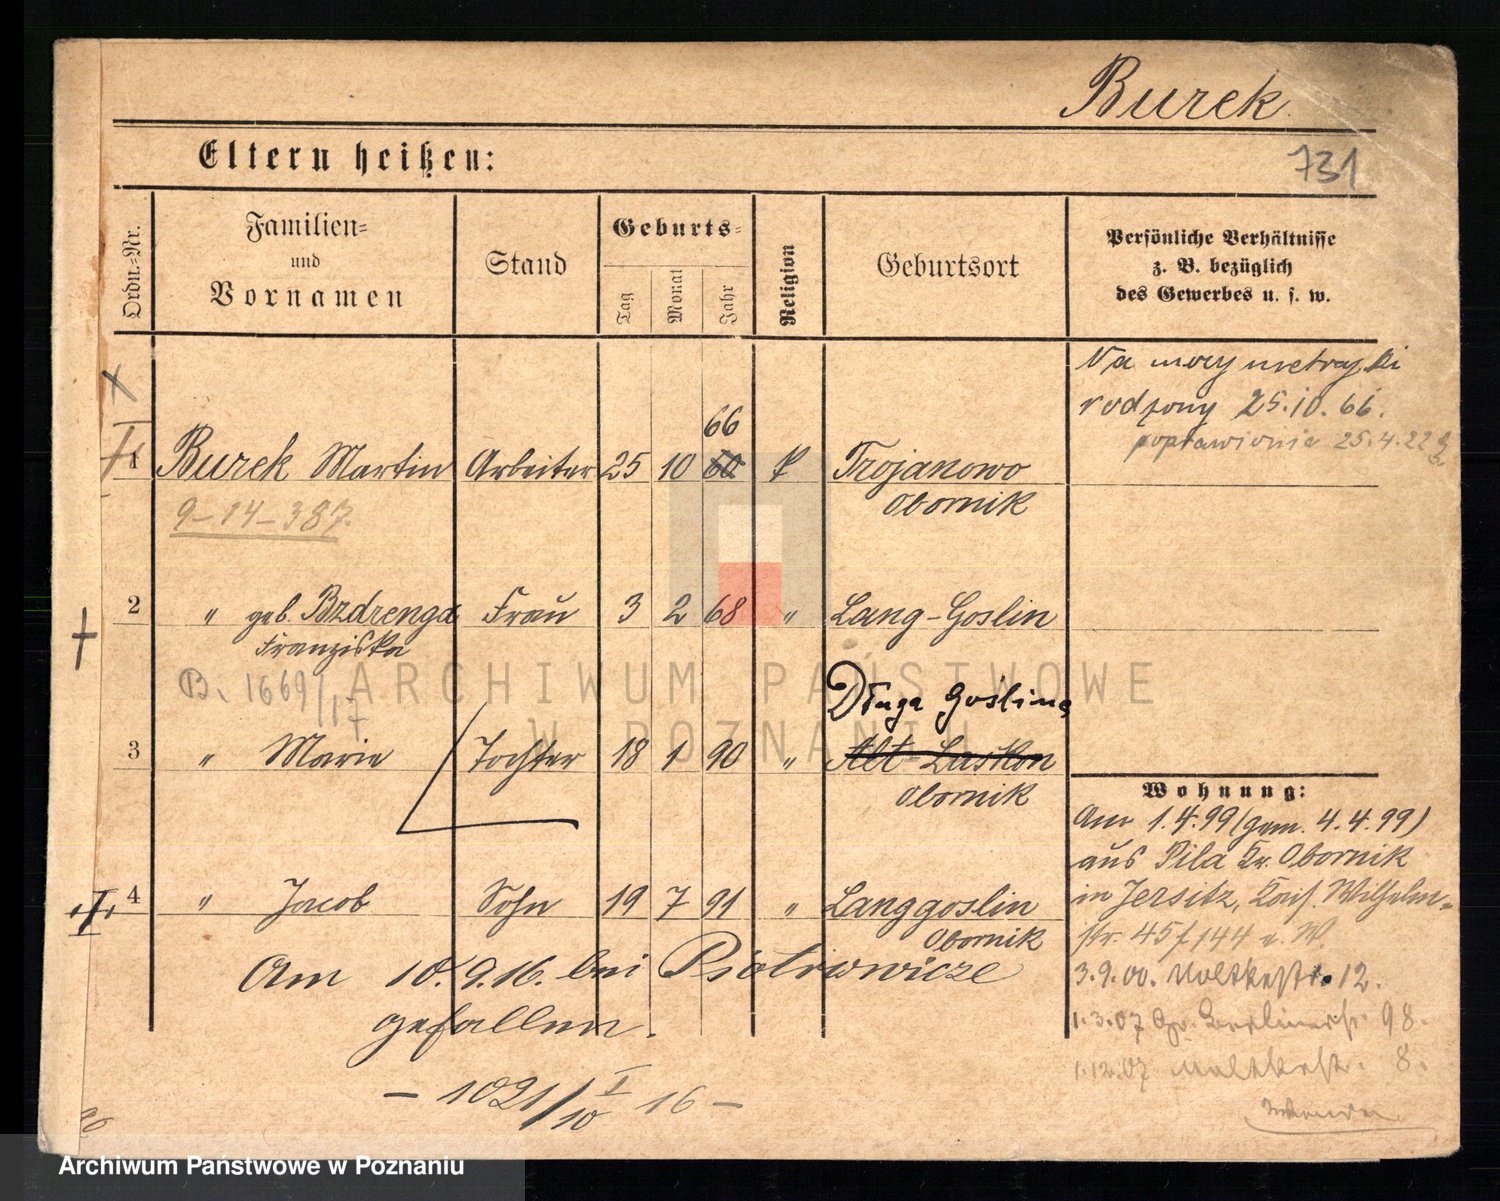 Burek
Eltern heißen:
731
Ordn.-Nr.
Familien-
und
Vornamen
Stand
Geburts-
Tag
Monat
Jahr
Religion
Geburtsort
Persönliche Verhältnisse
z. B. bezüglich
des Gewerbes u. s. w.
Na mocy metryki
rodzony 25.10.66.
poprawienie 25.4.22
66
1 Burek Martin Arbeiter 25 10 60 k Trojanowo
Obornik
9-14-387.
2 " geb. Bzdrenga Frau 3 2 68 " Lang-Goslin
Franziska
B. 1669/17
ARCHIWUM PAŃSTWOWE
W POZNANIU
Długa Goślina
3 " Marie Tochter 18 1 90 " Alt Laskon
Obornik
Wohnung:
Am 1.4.99 (gem. 4.4.99)
aus Pila Kr. Obornik
in Jersitz, Kais. Wilhelm-
str. 45/144 u. W.
4 " Jacob Sohn 19 7 91 " Langgoslin
Obornik
Am 18.9.16. bei Piotrowicze
gefallen.
3.9.00. Moltkestr. 12.
1.3.07 Gr. Berlinerstr. 98.
1.12.07 Moltkestr. 8.
- 1021/10 I 16 -
Archiwum Państwowe w Poznaniu